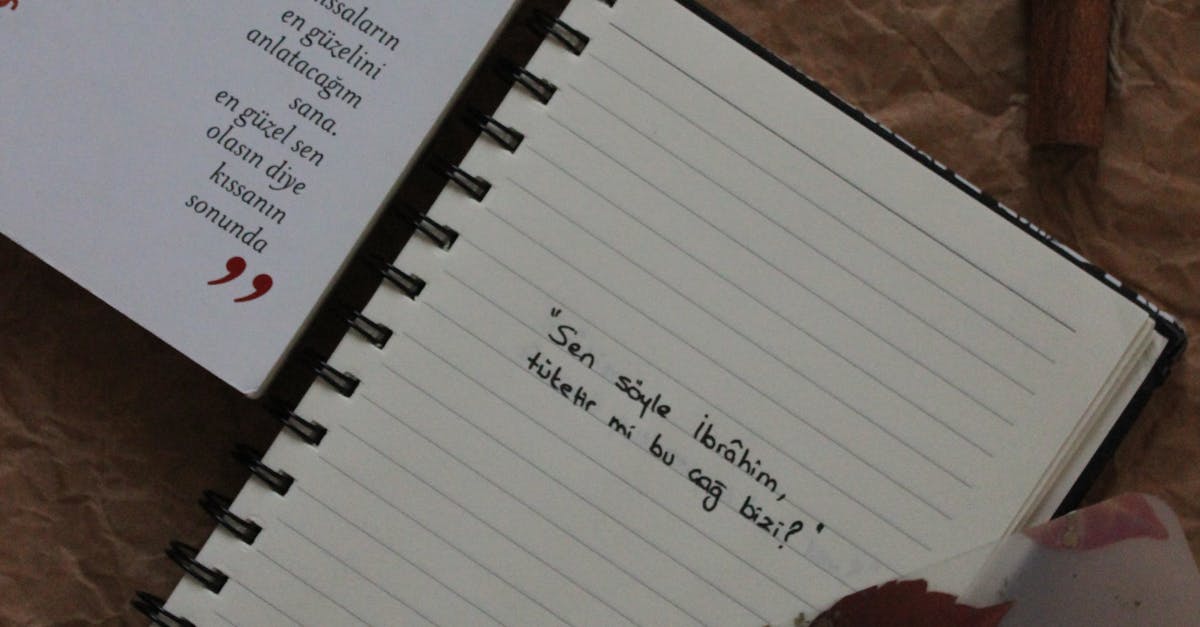 en güzelini
anlatacağım
sana.
en güzel sen
olasın diye
kıssanın
sonunda
”
"Sen söyle İbrâhim,
tüketir mi bu çağ bizi?"